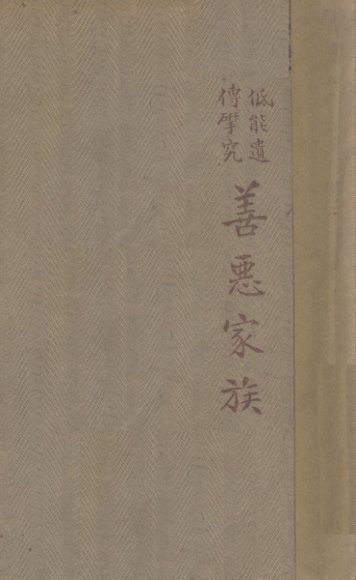 低能遺
傳擘究
善悪家族